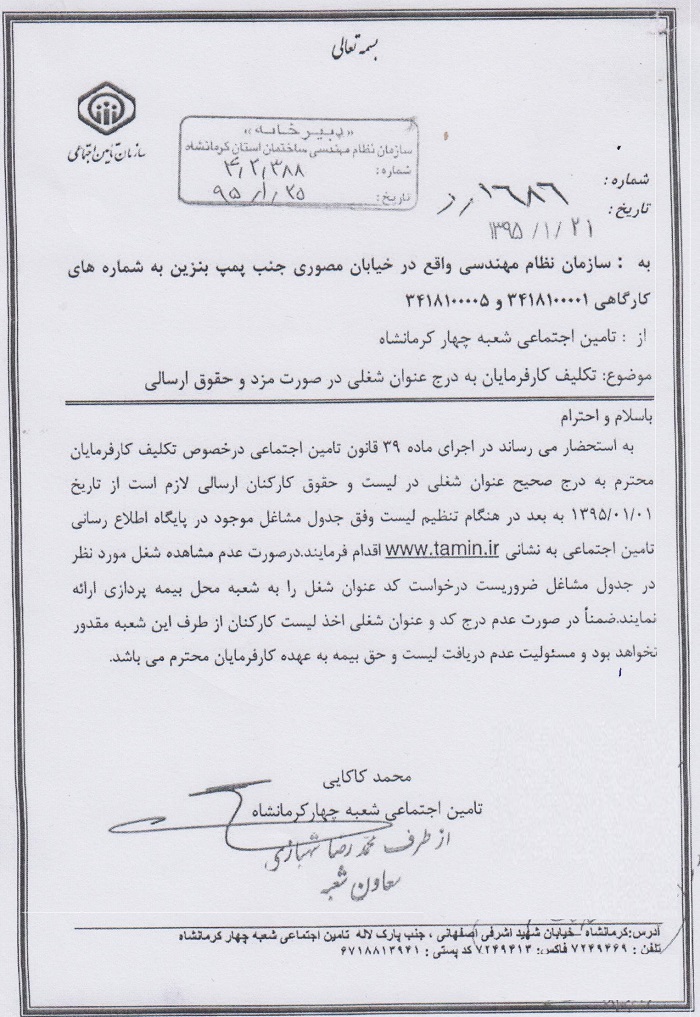 بسمه تعالی
سازمان تامین اجتماعی
«دبیرخانه»
سازمان نظام مهندسی ساختمان استان کرمانشاه
شماره: ۴,۲,۳۸۸
تاریخ: ۹۵/۱/۲۵
شماره: ۱۶۸۶
تاریخ: ۱۳۹۵/۱/۲۱
به : سازمان نظام مهندسی واقع در خیابان مصوری جنب پمپ بنزین به شماره های
کارگاهی ۳۴۱۸۱۰۰۰۰۱ و ۳۴۱۸۱۰۰۰۰۵
از : تامین اجتماعی شعبه چهار کرمانشاه
موضوع: تکلیف کارفرمایان به درج عنوان شغلی در صورت مزد و حقوق ارسالی
باسلام و احترام
به استحضار می رساند در اجرای ماده ۳۹ قانون تامین اجتماعی درخصوص تکلیف کارفرمایان
محترم به درج صحیح عنوان شغلی در لیست و حقوق کارکنان ارسالی لازم است از تاریخ
۱۳۹۵/۰۱/۰۱ به بعد در هنگام تنظیم لیست وفق جدول مشاغل موجود در پایگاه اطلاع رسانی
تامین اجتماعی به نشانی www.tamin.ir اقدام فرمایند.درصورت عدم مشاهده شغل مورد نظر
در جدول مشاغل ضروریست درخواست کد عنوان شغل را به شعبه محل بیمه پردازی ارائه
نمایند.ضمنأ در صورت عدم درج کد و عنوان شغلی اخذ لیست کارکنان از طرف این شعبه مقدور
نخواهد بود و مسئولیت عدم دریافت لیست و حق بیمه به عهده کارفرمایان محترم می باشد.
محمد کاکایی
تامین اجتماعی شعبه چهارکرمانشاه
از طرف محمد رضا شهبازی
معاون شعبه
آدرس:کرمانشاه خیابان شهید اشرفی اصفهانی ، جنب پارک لاله تامین اجتماعی شعبه چهار کرمانشاه
تلفن : ۷۲۴۹۴۶۹ فاکس: ۷۲۴۹۴۱۳ کد پستی : ۶۷۱۸۸۱۳۹۴۱